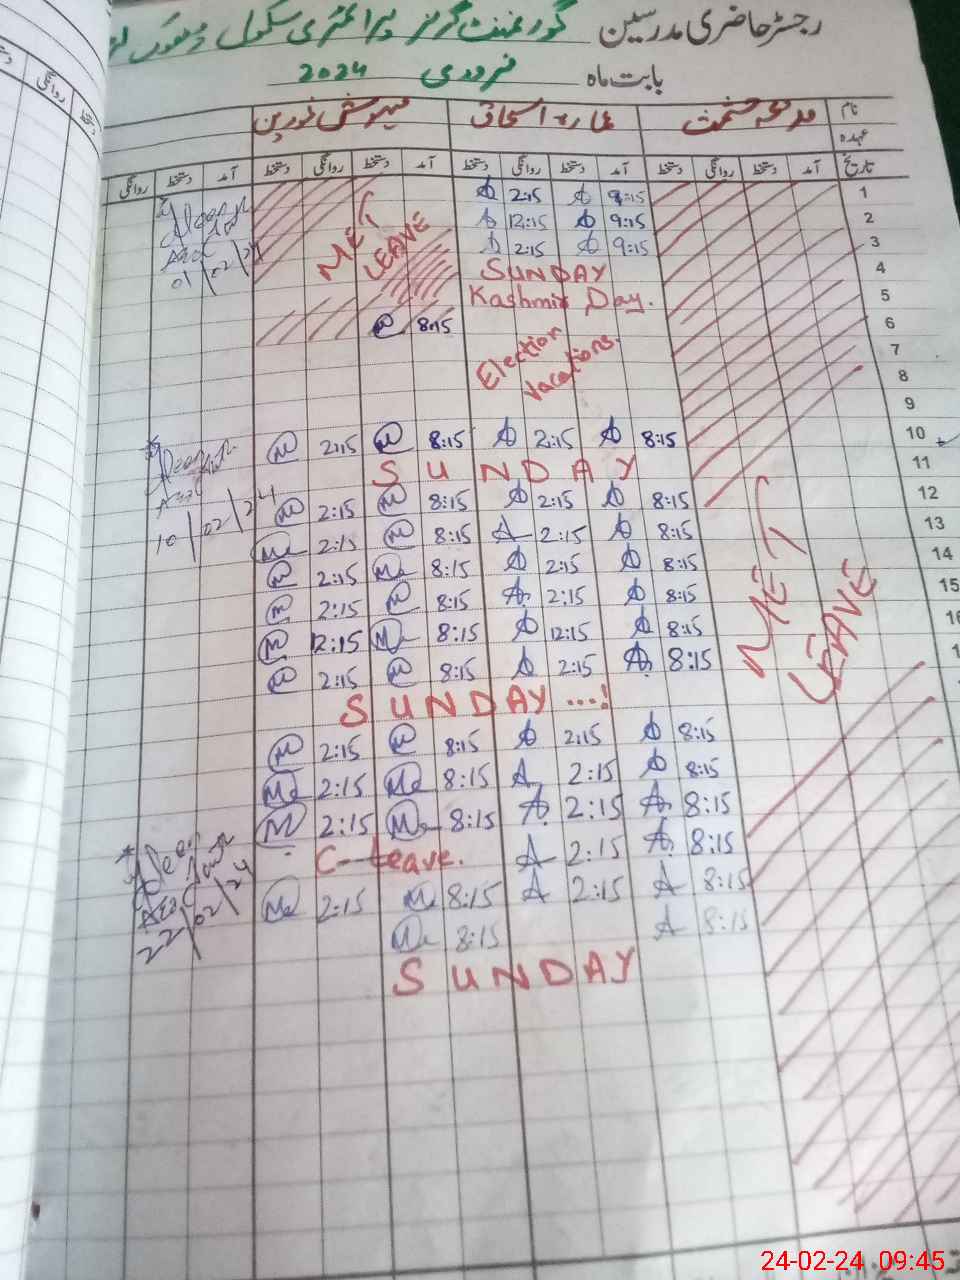 رجسٹر حاضری مدرسین گورنمنٹ گرلز پرائمری سکول
بابت ماہ فروری 2024
نام عمارہ اسحاق
عہدہ
تاریخ آمد دستخط روانگی دستخط آمد دستخط روانگی دستخط آمد دستخط روانگی دستخط آمد دستخط روانگی
1 9:15 2:15
2 9:15 12:15
3 9:15 2:15
MET LEAVE
01/02/24
4 SUNDAY
5 Kashmir Day.
6 8:15
7 Election
8 Vacations.
9
10 8:15 2:15 8:15 2:15
11 SUNDAY
10/02/24
12 8:15 2:15 8:15 2:15
13 8:15 2:15 8:15 2:15
14 8:15 2:15 8:15 2:15
15 8:15 2:15 8:15 2:15
16 8:15 12:15 8:15 12:15
8:15 2:15 8:15 2:15
MET LEAVE
SUNDAY ...!
8:15 2:15 8:15 2:15
8:15 2:15 8:15 2:15
8:15 2:15 8:15 2:15
8:15 2:15 C-Leave.
8:15 2:15 8:15 2:15
22/02/24
8:15 8:15
SUNDAY
24-02-24 09:45